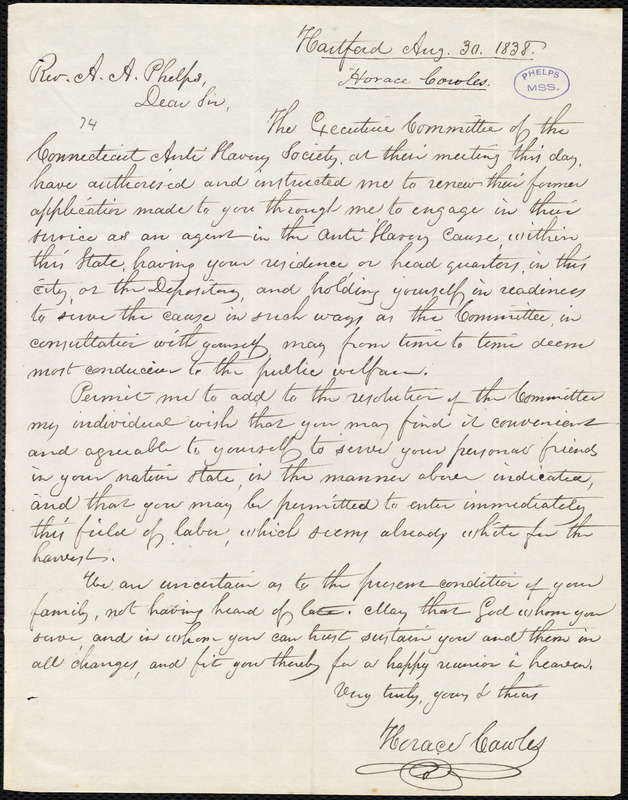 Hartford Aug. 30. 1838.
Horace Cowles.
PHELPS
MSS.
Rev. A. A. Phelps,
Dear Sir,
74
The Executive Committee of the
Connecticut Anti Slavery Society, at their meeting this day,
have authorised and instructed me to renew their former
application made to you through me to engage in their
service as an agent in the Anti Slavery Cause, within
this State, having your residence or head quarters, in this
city, or the Depository, and holding yourself in readiness
to serve the cause in such ways as the Committee, in
consultation with yourself, may from time to time deem
most conducive to the public welfare.
Permit me to add to the resolution of the Committee
my individual wish that you may find it convenient
and agreable to yourself, to serve your personal friends
in your native State, in the manner above indicated,
and that you may be permitted to enter immediately
this field of labor, which seems already white for the
harvest.
We are uncertain as to the present condition of your
family, not having heard of late. May that God whom you
serve, and in whom you can trust sustain you and them in
all changes, and fit you thereby for a happy reunion in heaven.
Very truly, yours & theirs
Horace Cowles